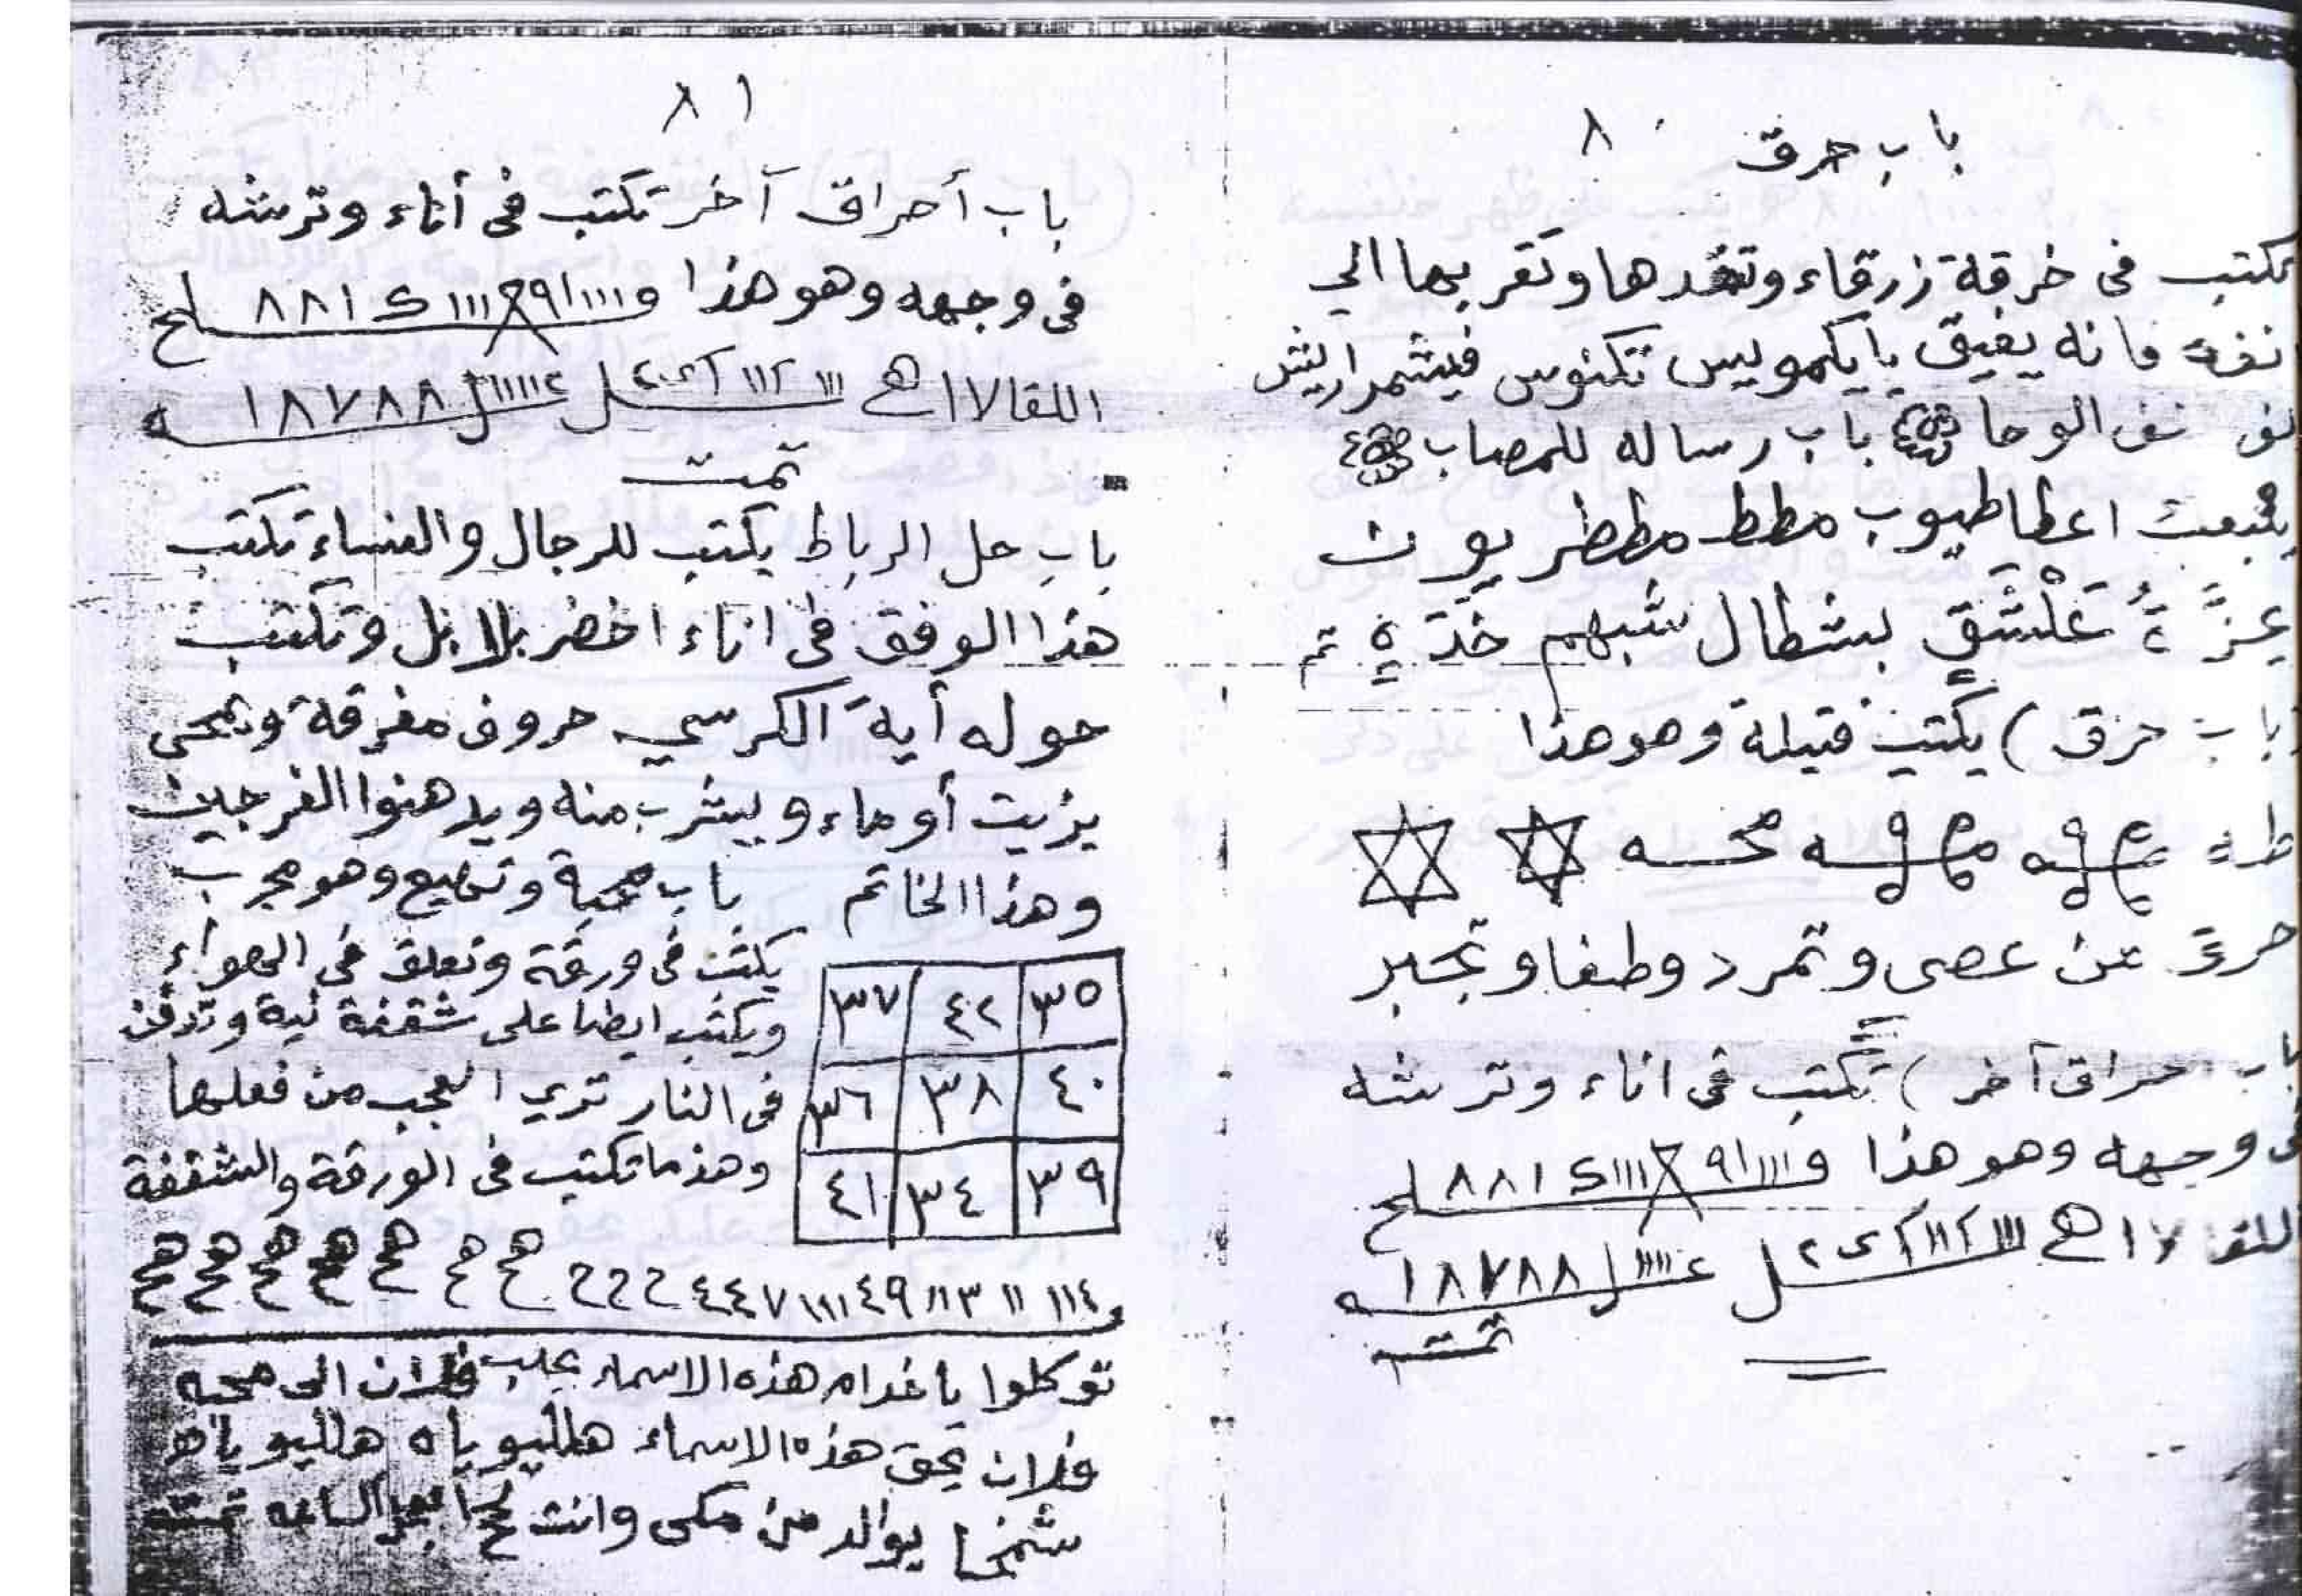 باب حرق ٨٠
يكتب فى خرقة زرقاء وتقدها وتقربها الي
نفه فانه يفيق يايكمويس تكنوس فيشمرا ريش
نف نف الوحا باب رساله للمصاب
اعطا طيوب مطط مططر يوث
عزَّةٌ عَلْشَقٍ بشطال شبهم خدَّةٍ تم
باب حرق ) يكتب فتيلة وهو هذا
طه محـه
حرق من عصى وتمرد وطغا وتجبر
باب حراق آخر ) تكتب فى اناء وترشه
فى وجهه وهو هذا و١١١ا٩ ١١١ ٨٨١٤ لح
للقالا١هح ١١١ ١١٢ ل ١١١١١ع ل ١٨٧٨٨ ه
تمت
٨١
باب أحراق آخر تكتب فى أناء وترشه
فى وجهه وهو هذا و١١١ا٩ ١١١ ٨٨١٤ لح
اللقالا١هح ١١١ ١١٢ ل ١١١١١ع ل ١٨٧٨٨ ه
تمت
باب حل الرباط يكتب للرجال والنساء تكتب
هذا الوفق فى اناء اخضر بلا بل وتكتب
حوله أية الكرسي حروف مفرقة ويمحى
بزيت أو ماء ويشرب منه ويدهنوا الفرجين
وهذا الخاتم
٣٥ ٤٢ ٣٧
٤٠ ٣٨ ٣٦
٣٩ ٣٤ ٤١
باب محبة وتهيج وهو مجرب
يكتب فى ورقة وتعلق فى الهواء
ويكتب ايضا على شقفة نية وتدفن
فى النار تري العجب من فعلها
وهذ ما تكتب فى الورقة والشقفة
و١١٤ ١١ ١١٣ ٤٩ ١١١ ٤٤٧ ححح هح هح هح هح هح هح هح
توكلوا ياخدام هذه الاسماء بجلب فلان الى محبه
فلان بحق هذه الاسماء هلليو ياه هلليو ياه
شمخا يوالد من مكى وانت الساعه تمت